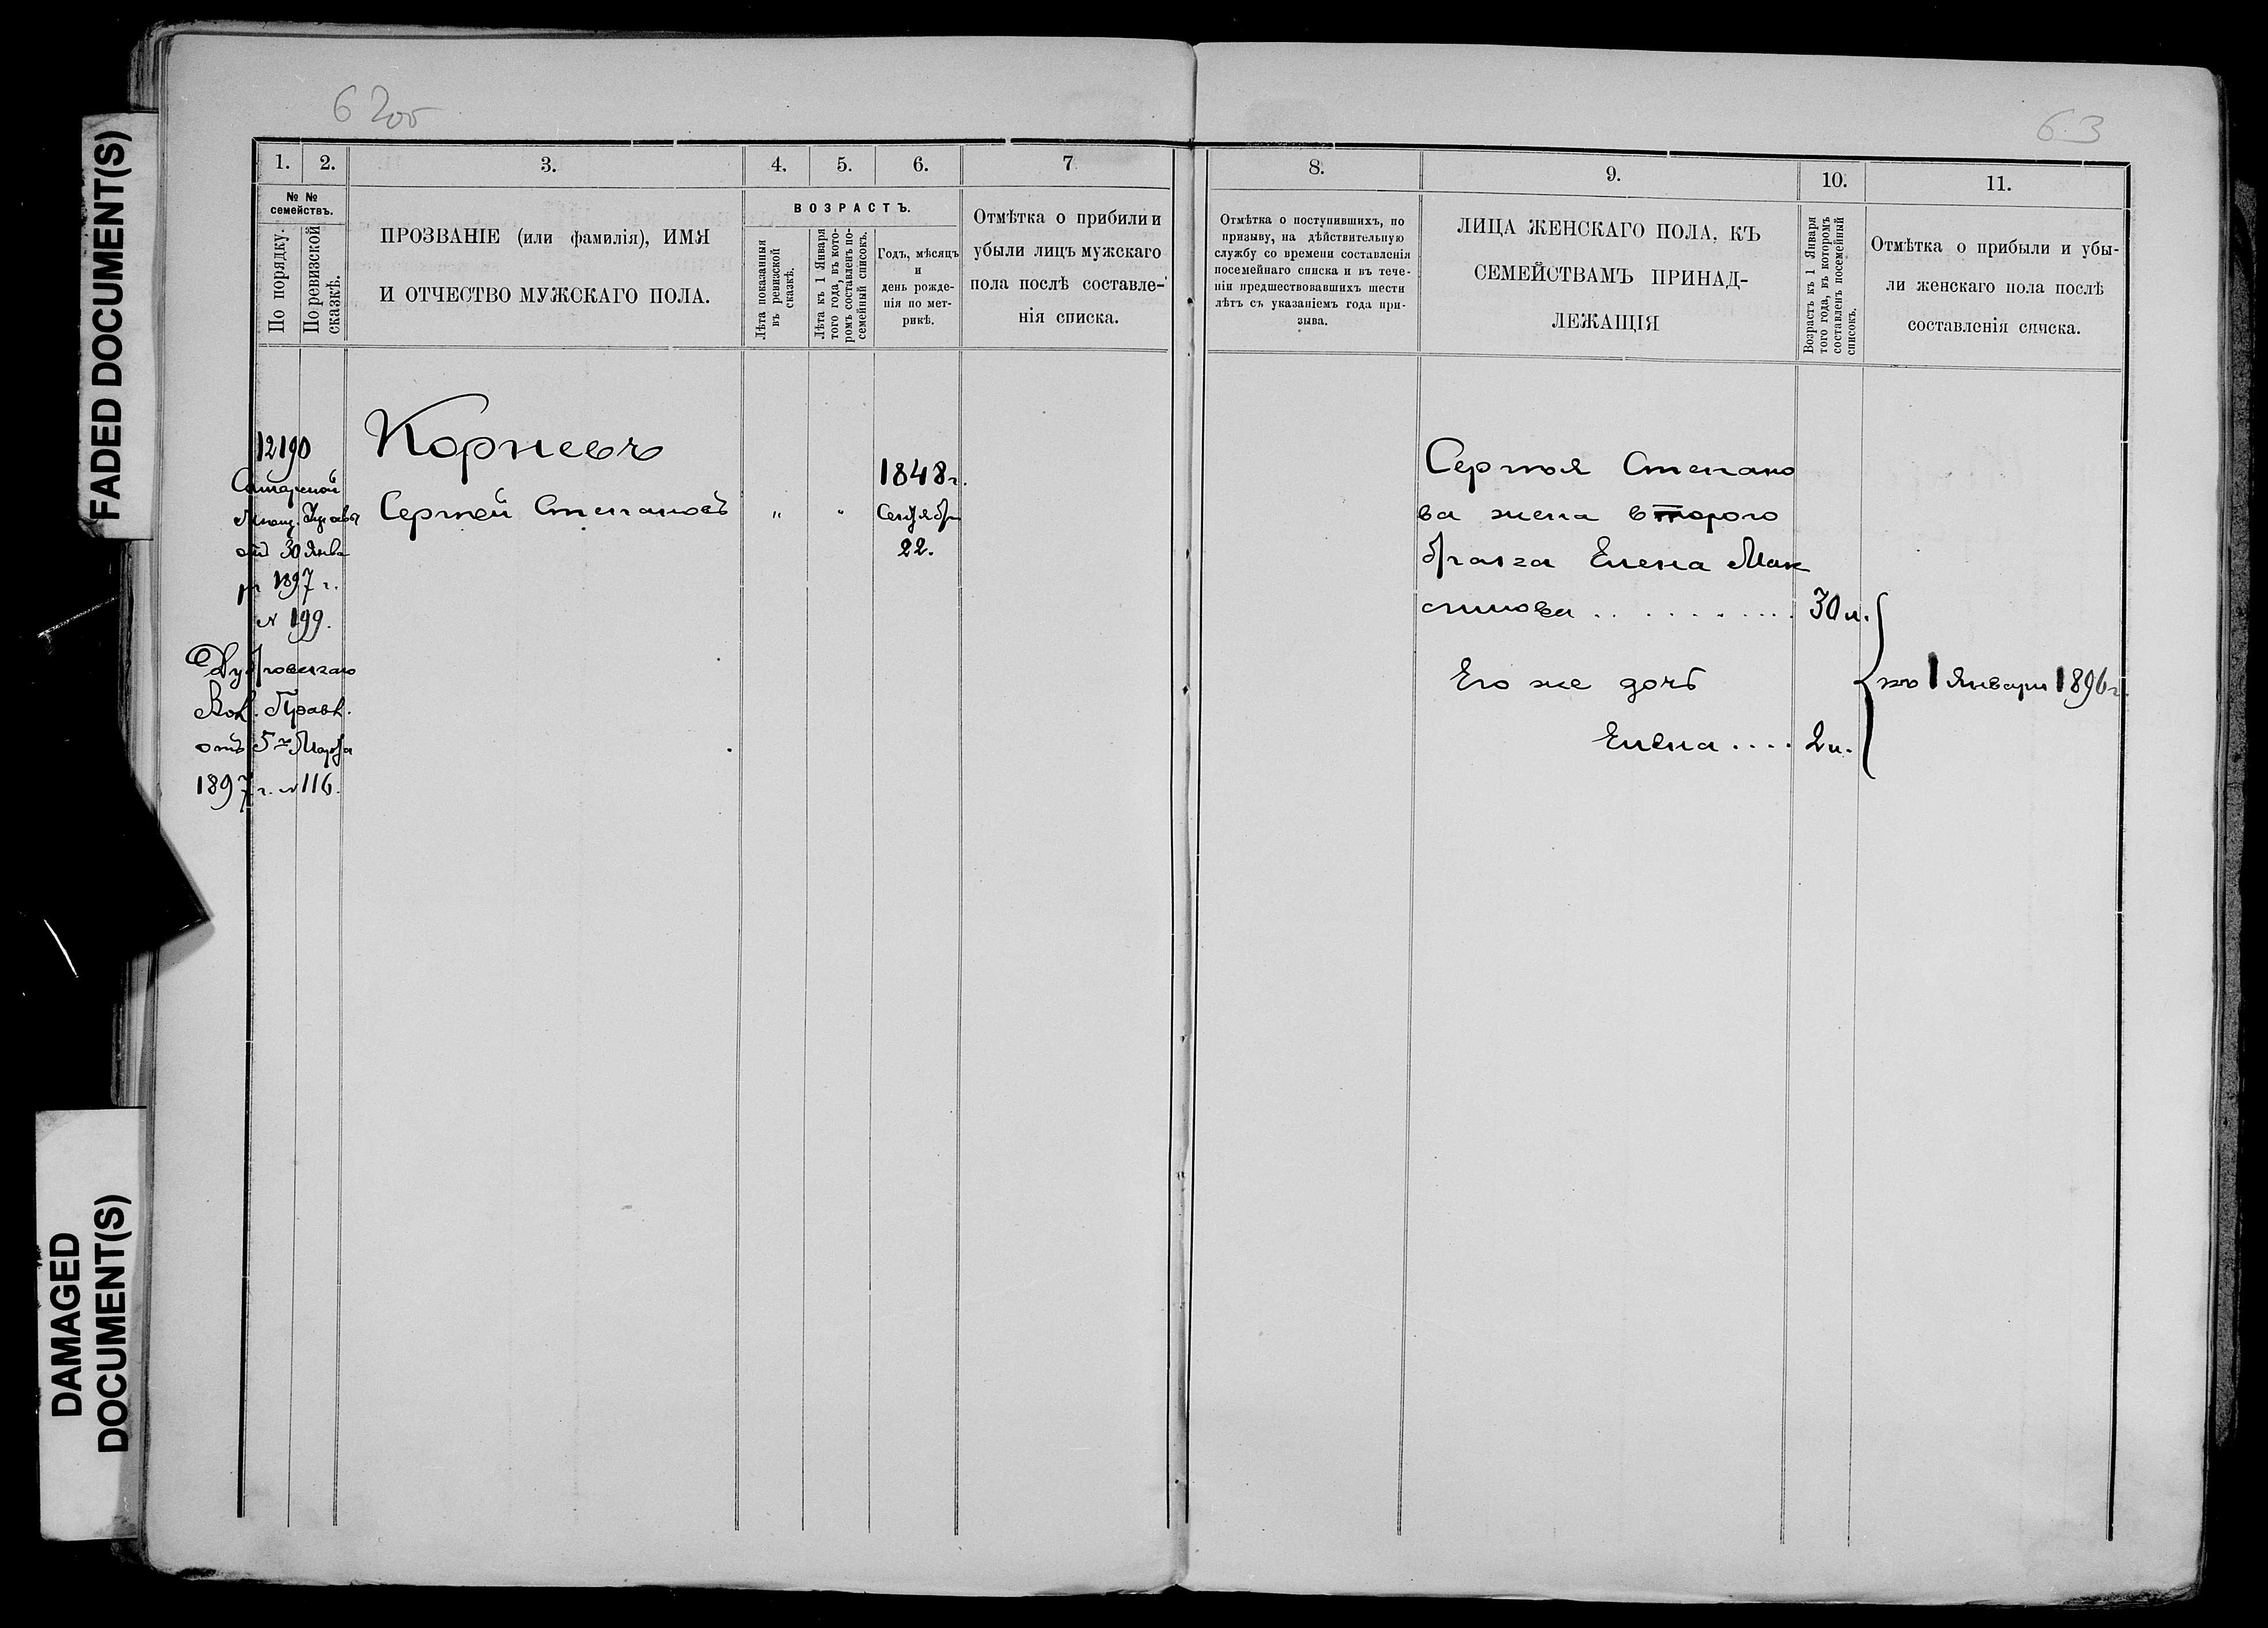 FADED DOCUMENT(S)
DAMAGED
DOCUMENT(S)
62об
63
1. 2. 3. 4. 5. 6. 7
№ №
семействъ.
По порядку.
По ревизской
сказкѣ.
ПРОЗВАНІЕ (или фамилія), ИМЯ
И ОТЧЕСТВО МУЖСКАГО ПОЛА.
ВОЗРАСТЪ.
Лѣта показанныя
въ ревизской
сказкѣ.
Лѣта къ 1 Января
того года, въ кото-
ромъ составленъ по-
семейный списокъ.
Годъ, мѣсяцъ
и
день рожде-
нія по мет-
рикѣ.
Отмѣтка о прибыли и
убыли лицъ мужскаго
пола послѣ составле-
нія списка.
12190
Самарской
Мѣщ. Управы
отъ 30 Янва
ря 1897 г.
№ 199.
Дубровскаго
Вол. Правл.
отъ 5го Марта
1897 г. № 116.
Корневъ
Сергѣй Степановъ „ „
1848 г.
Сентября
22.
8. 9. 10. 11.
Отмѣтка о поступившихъ, по
призыву, на дѣйствительную
службу со времени составленія
посемейнаго списка и въ тече-
ніи предшествовавшихъ шести
лѣтъ съ указаніемъ года при-
зыва.
ЛИЦА ЖЕНСКАГО ПОЛА, КЪ
СЕМЕЙСТВАМЪ ПРИНАД-
ЛЕЖАЩІЯ
Возрастъ къ 1 Января
того года, въ которомъ
составленъ посемейный
списокъ.
Отмѣтка о прибыли и убы-
ли женскаго пола послѣ
составленія списка.
Сергѣя Степано
ва жена второго
брака Елена Мак
симова . . . . . . . . . . 30 л.
Его же дочь
Елена .... 2 л.
1 Января 1896 г.